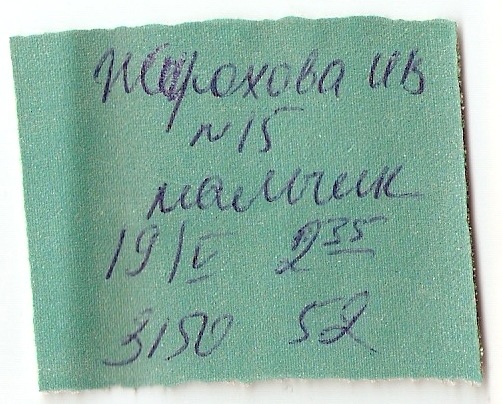 Жорохова ИВ
N15
мальчик
19/V 2 35
3150 52